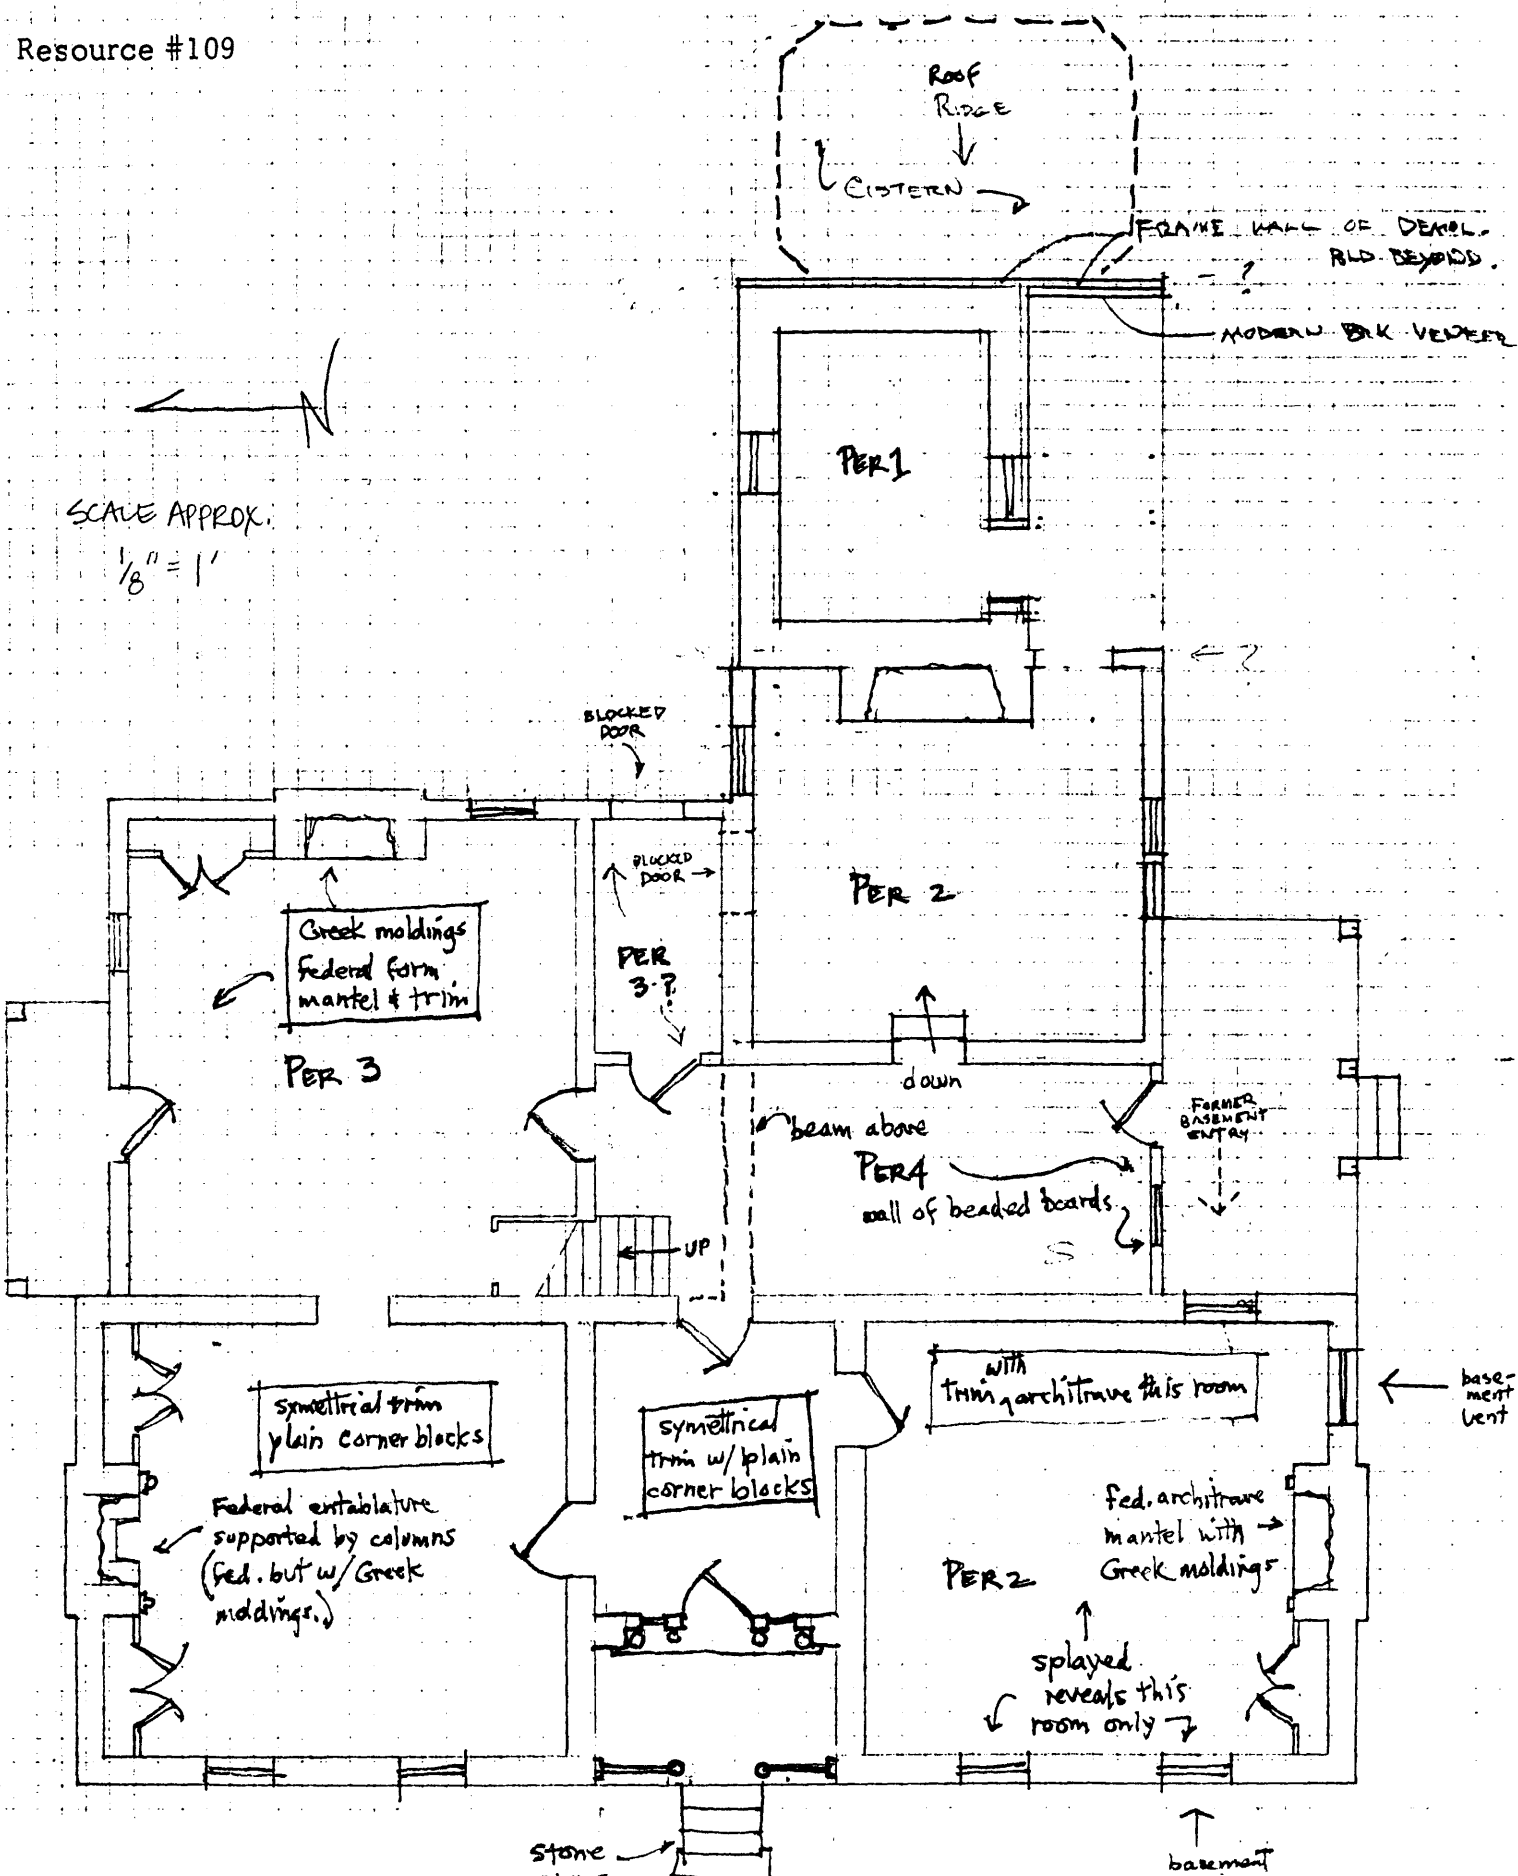 Resource #109
ROOF
RIDGE
CISTERN
FRAME WALL OF DEMOL.
BLD BEYOND.
- ?
MODERN BRK VENEER
N
SCALE APPROX.
1/8" = 1'
PER 1
← ?
BLOCKED
DOOR
BLOCKED
DOOR →
PER 2
Greek moldings
Federal form
mantel & trim
PER
3-?
PER 3
down
FORMER
BASEMENT
ENTRY
beam above
PER4
wall of beaded boards
S
UP
symettrial trim
plain corner blocks
symettrical
trim w/ plain
corner blocks
with
trim architrave this room
base-
ment
vent
Federal entablature
supported by columns
(fed. but w/ Greek
moldings.)
fed. architrave
mantel with
Greek moldings
PER 2
splayed
reveals this
room only
stone
basement